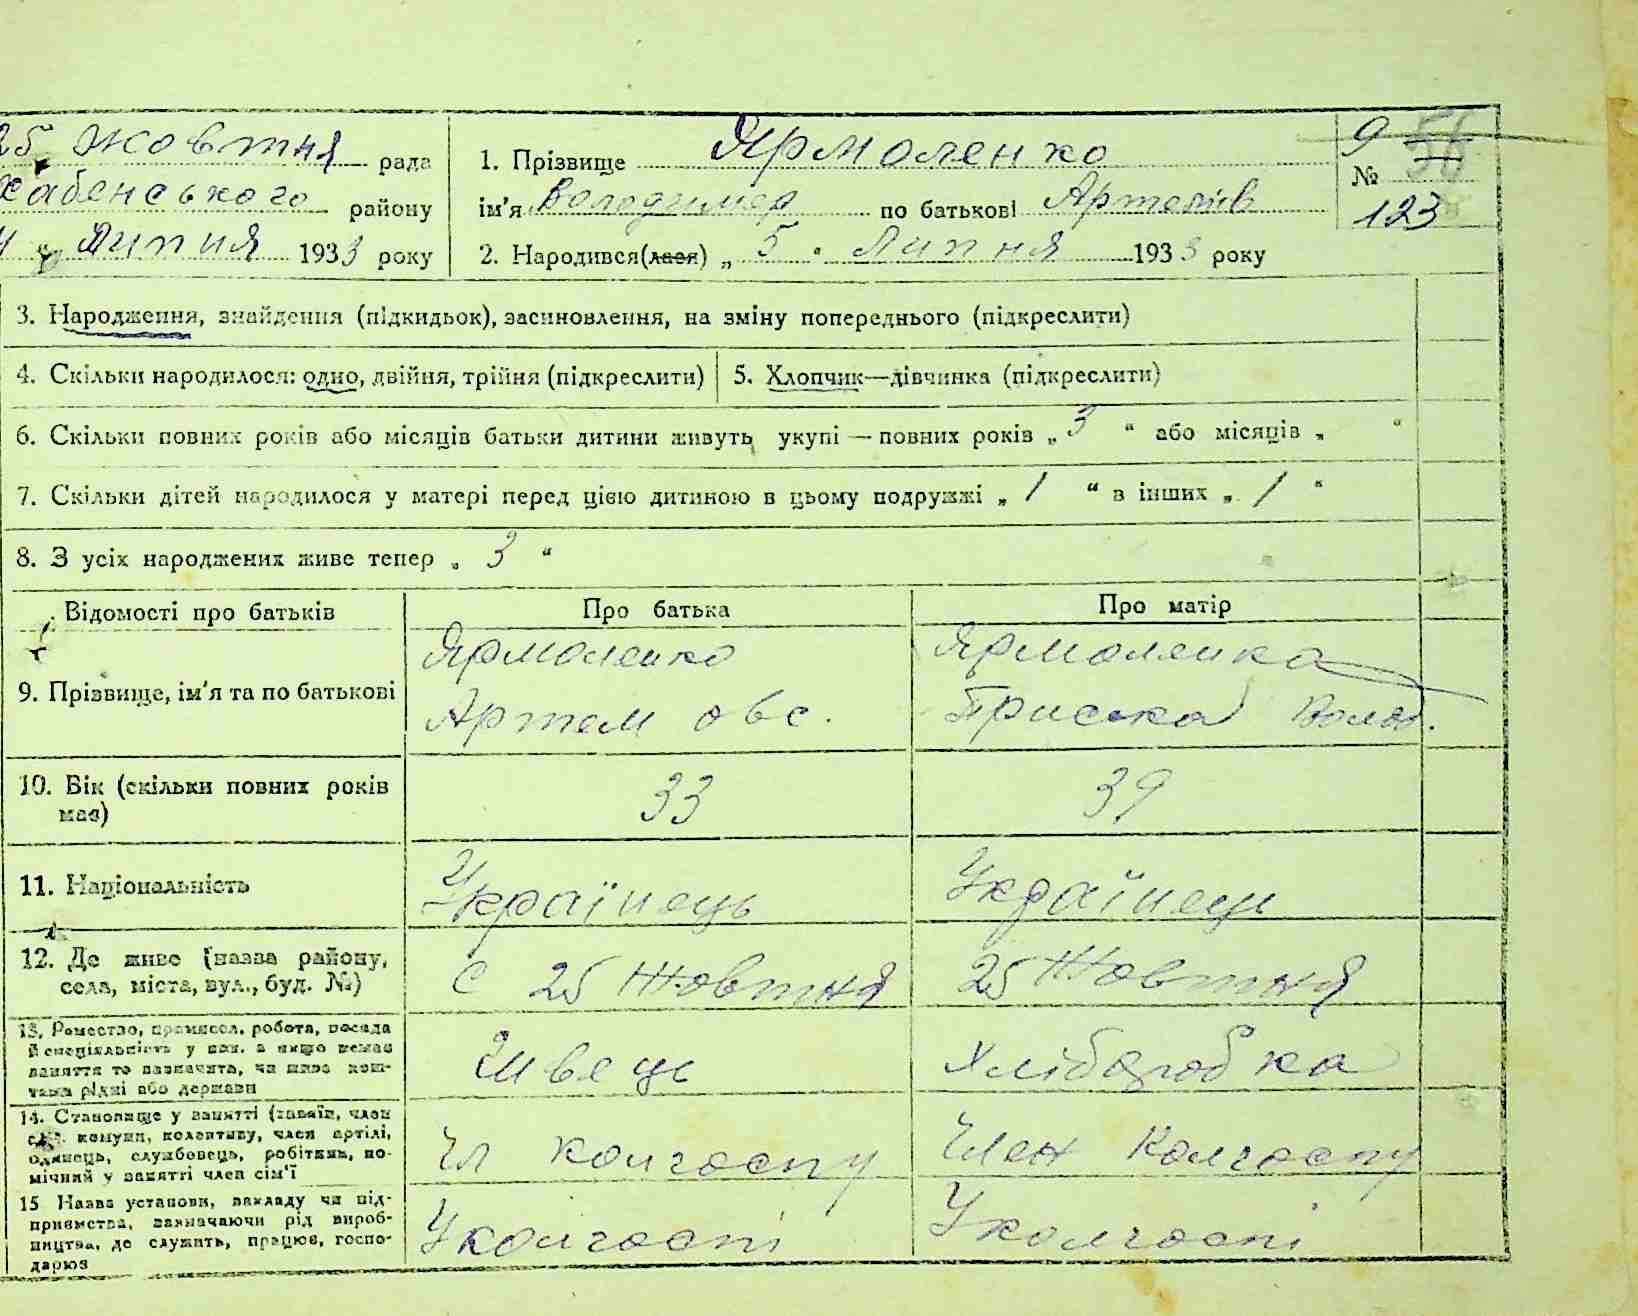 25 Жовтня рада
Хабенського району
Липня 1933 року
1. Прізвище Ярмоленко
ім'я Володимер по батькові Артемів
2. Народився(лася) „ 5 " Липня 1933 року
9 56
№
123
3. Народження, знайдення (підкидьок), засиновлення, на зміну попереднього (підкреслити)
4. Скільки народилося: одно, двійня, трійня (підкреслити)
5. Хлопчик—дівчинка (підкреслити)
6. Скільки повних років або місяців батьки дитини живуть укупі — повних років „ 3 " або місяців „ "
7. Скільки дітей народилося у матері перед цією дитиною в цьому подружжі „ 1 " в інших „ 1 "
8. З усіх народжених живе тепер „ 3 "
Відомості про батьків
Про батька
Про матір
9. Прізвище, ім'я та по батькові
Ярмоленко
Артем овс.
Ярмоленка
Приська Волод.
10. Вік (скільки повних років
має)
33
39
11. Національність
Українець
Українець
12. Де живе (назва району,
села, міста, вул., буд. №)
С 25 Жовтня
25 Жовтня
13. Ремество, промисел, робота, посада
й спеціяльність у зан. а якщо немає
заняття то зазначить, чи живе кош-
тами рідні або держави
Швець
Хліборобка
14. Становище у занятті (хазяїн, член
комуни, колективу, член артілі,
одинець, службовець, робітник, по-
мічний у занятті член сім'ї
Чл колгоспу
Член Колгоспу
15 Назва установи, закладу чи під-
приємства, зазначаючи рід вироб-
ництва, де служить, працює, госпо-
дарює
У колгоспі
У колгоспі